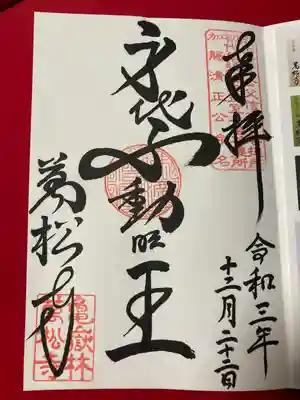 奉拝
令和三年
十二月二十二日
加藤清正公命名
身代不動明王
萬松寺
亀嶽林
萬松寺